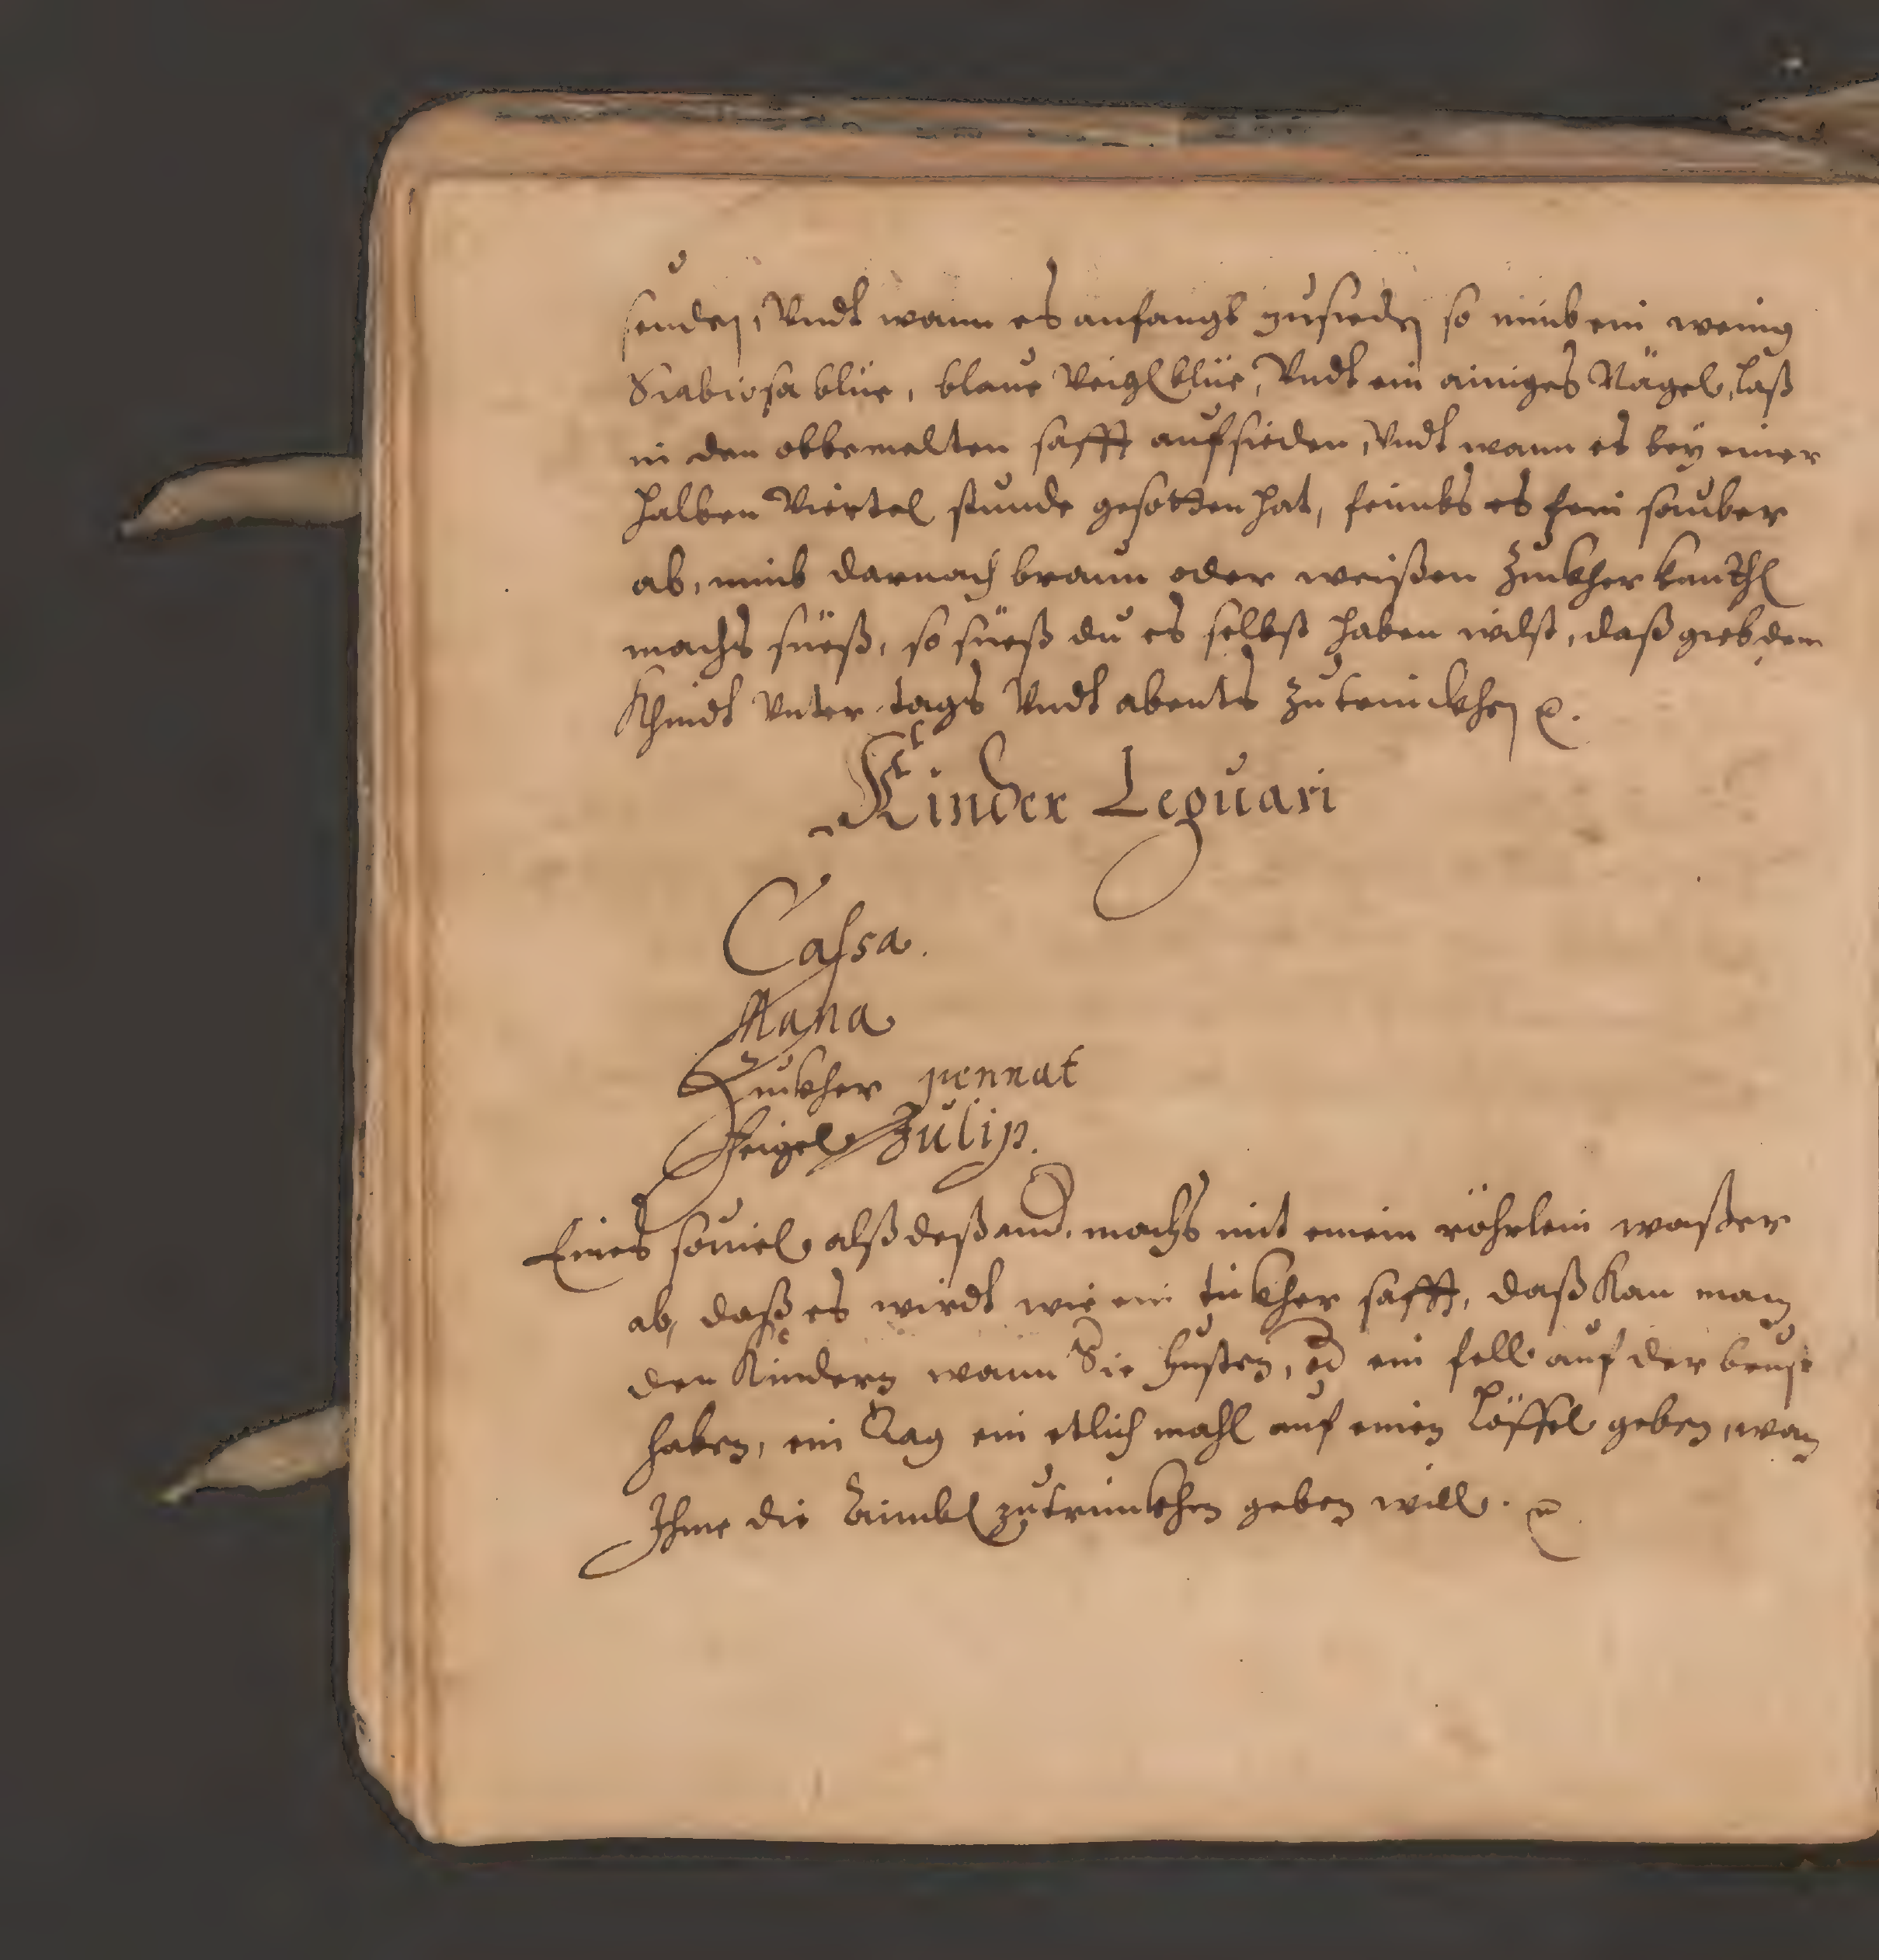 sieden, Vndt wann es anfangt zusieden so nimb ein wenig
Scabiosa blüe, blaue Veigl blüe, Vndt ein ainiges Nägel, laß
in den obbemelten safft aufsieden, Vndt wann es bey einer
halben Viertel stunde gesotten hat, feimbs es fein sauber
ab, nimb darnach braun oder weißen Zuckher kanthl
machs süeß, so süeß du es selbst haben wilst, daß gieb dem
Khindt Vnter tags Vndt abents zu trinckhen
Kinder Lequari
Cassa.
Mana
Zuckher pennat
Feigel Zulip.
Eines souiel alß deß and. machs mit einem röhrlein waßer
ab, daß es wirdt wie ein tickher safft, daß Kan man
den Kindern wann Sie husten, od ein fell auf der brust
haben, ein Tag ein etlich mahl auf einen Löffel geben, wan
Ihme die zutrinckhen geben will.